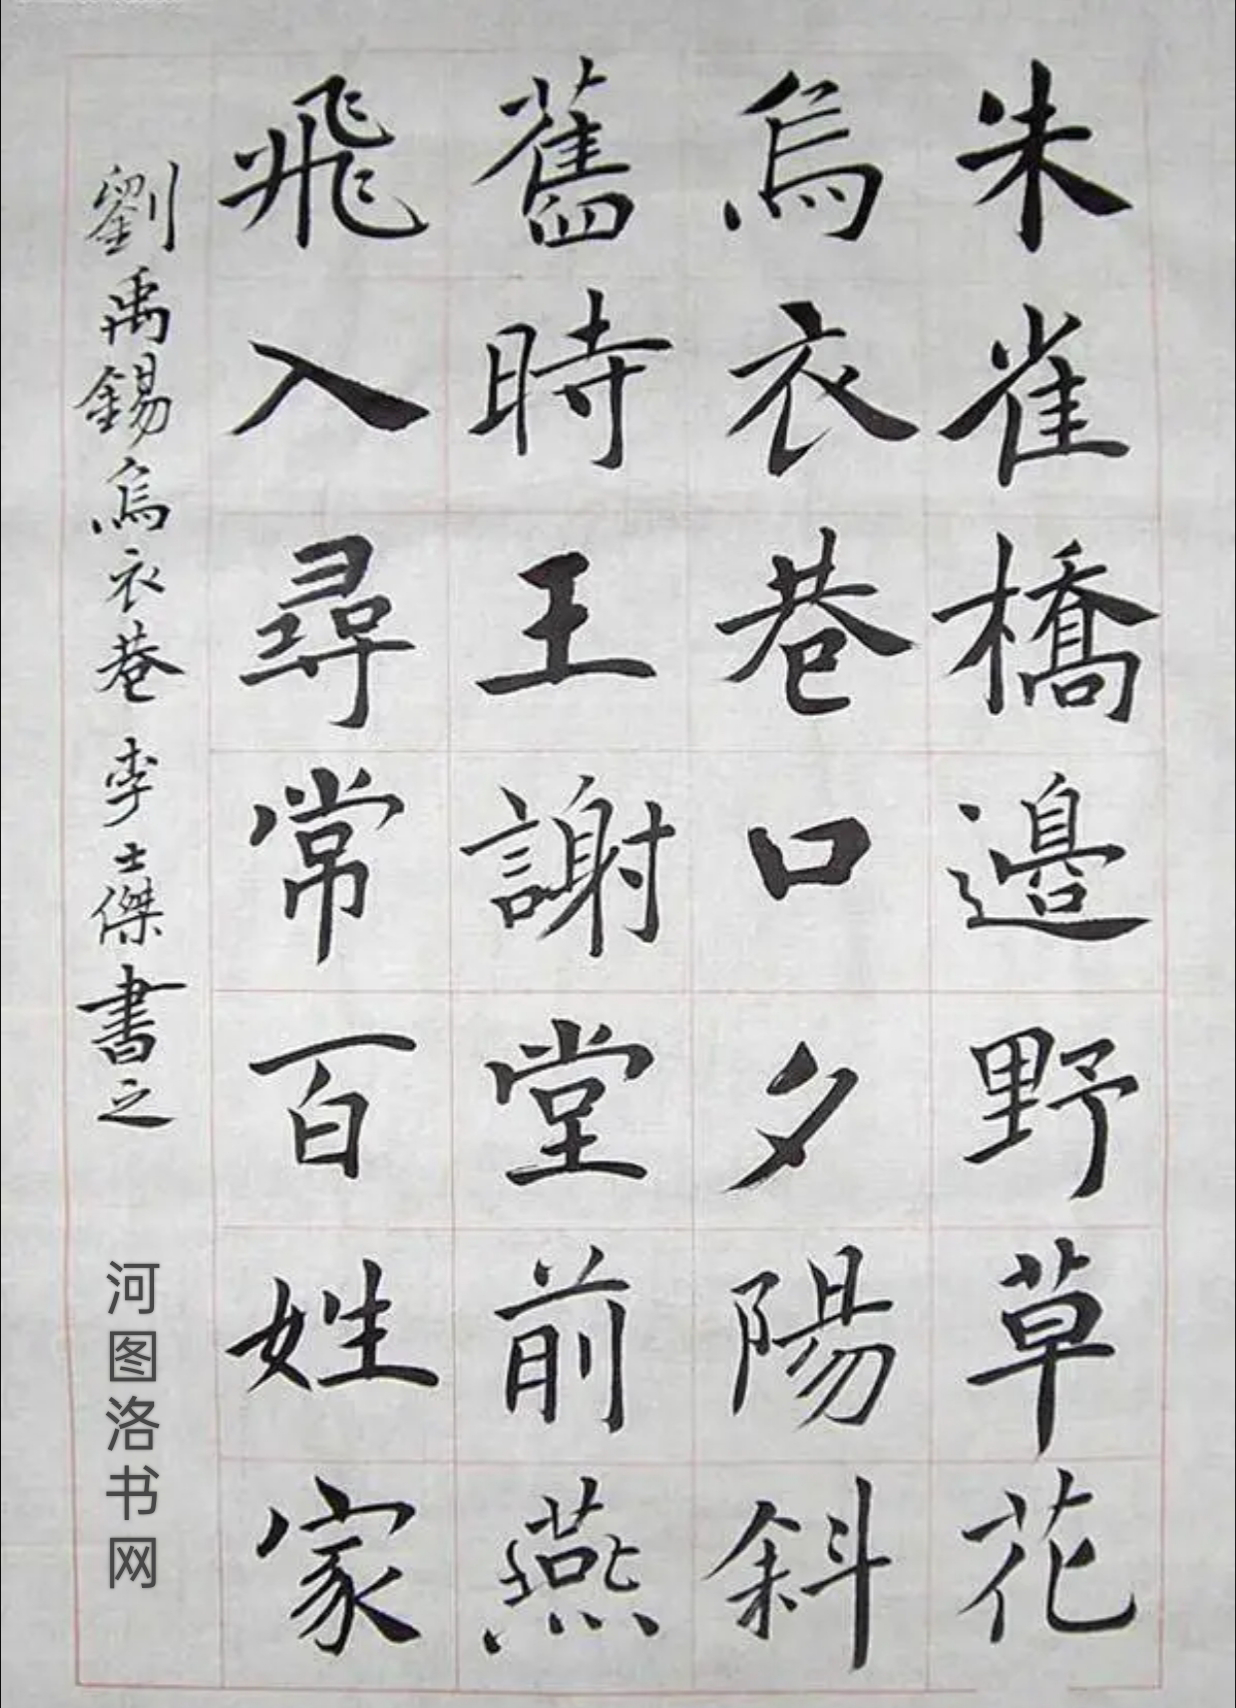 朱雀橋邊野草花
烏衣巷口夕陽斜
舊時王謝堂前燕
飛入尋常百姓家
劉禹錫烏衣巷 李士傑書之
河图洛书网